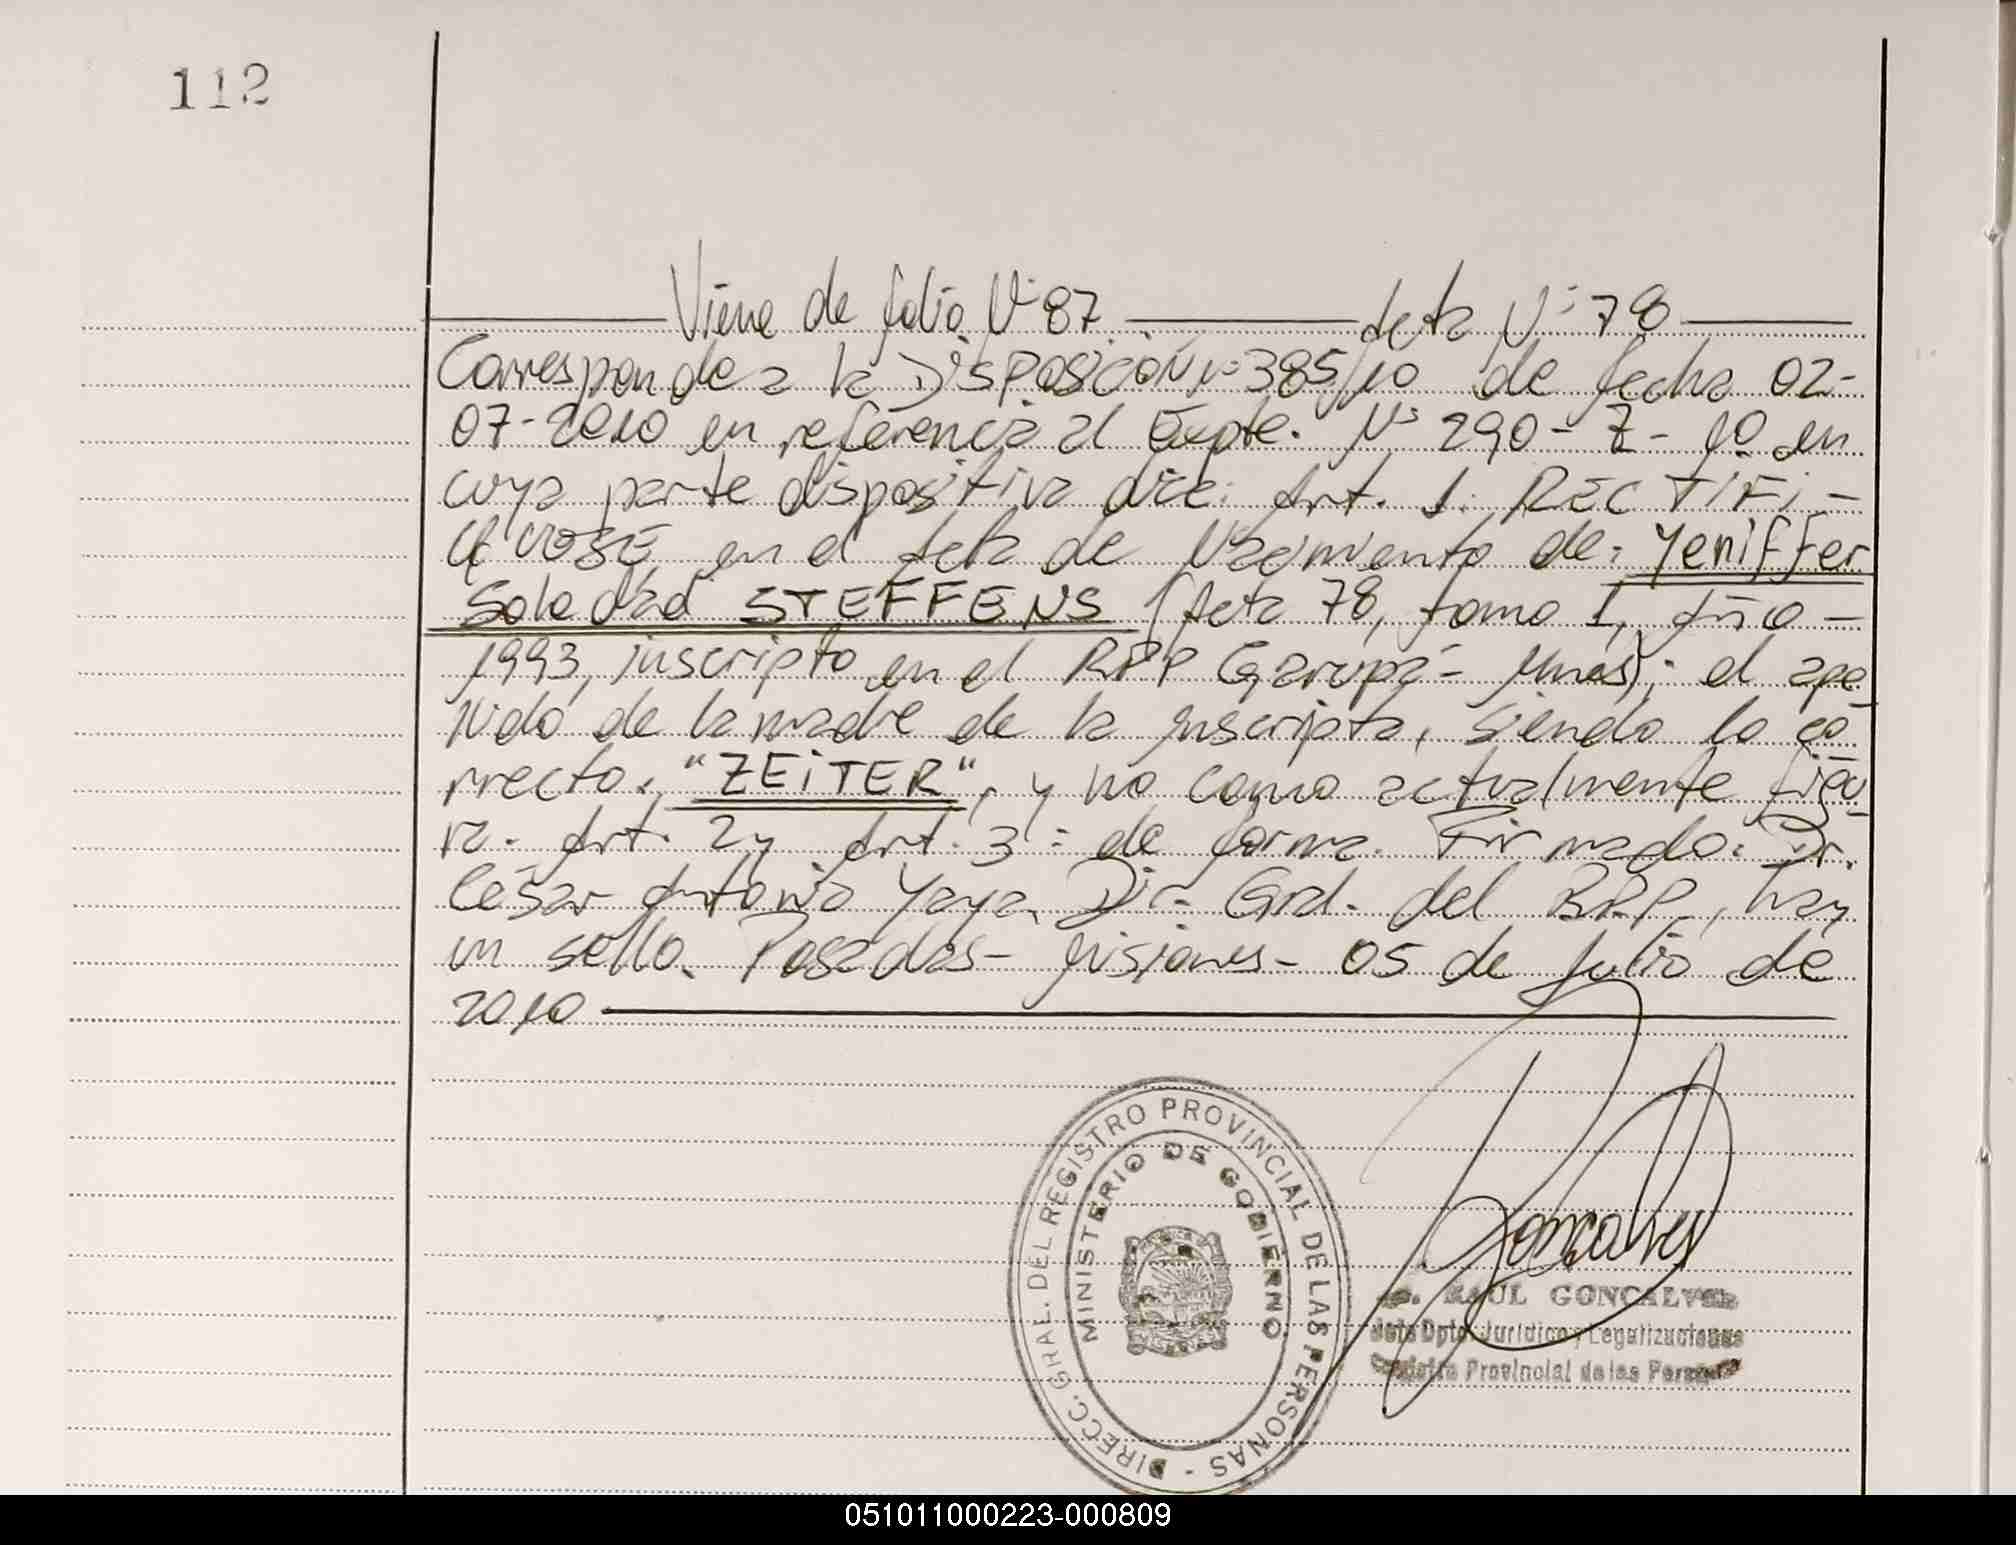 112
Viene de folio Nº 87 Acta Nº 78
Corresponde a la DISPOSICIÓN Nº 385/10 de fecha 02-
07-2010 en referencia al Expte. Nº 290-Z-10 en
cuya parte dispositiva dice: Art. 1: RECTIFI-
CARSE, en el Acta de Nacimiento de: Yeniffer
Soledad STEFFENS (Acta 78, tomo 1, Año-
1993, inscripto en el RPP Garupá- Mnes); el ape
llido de la madre de la inscripta, siendo lo co-
rrecto: "ZEiTER", y no como actualmente figu-
ra. Art. 2 y Art. 3: de forma. Firmado: Dr.
César Antonio Yaya, Dir. Gral. del RPP, hay
un sello. Posadas- Misiones- 05 de Julio de
2010
DIRECC. GRAL. DEL REGISTRO PROVINCIAL DE LAS PERSONAS -
MINISTERIO DE GOBIERNO
Goncalves
RAUL GONCALVES
Jefe Dpto. Jurídico y Legalizaciones
Registro Provincial de las Personas
051011000223-000809